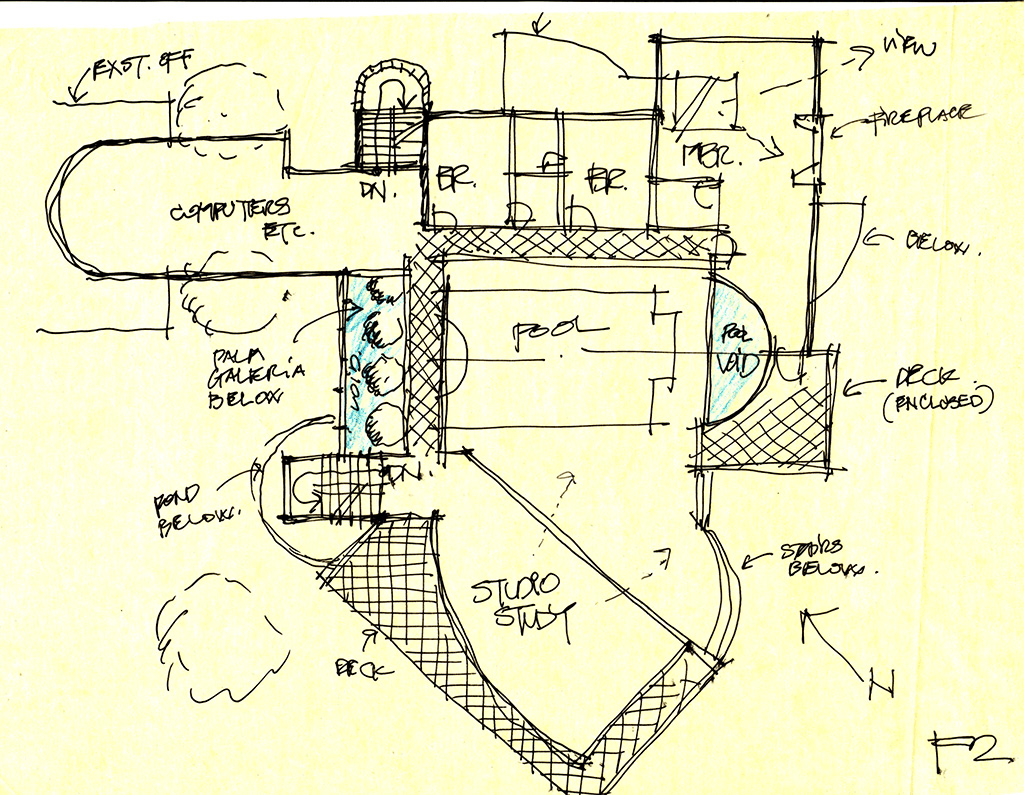 EXST. OFF
VIEW
FIREPLACE
MBR.
BR.
BR.
DN.
COMPUTERS
ETC.
BELOW.
POOL
POOL
VOID
PALM
GALERIA
BELOW
VOID
DECK
(ENCLOSED)
DN
POND
BELOW.
STUDIO
STUDY
STAIRS
BELOW.
DECK
N
F2